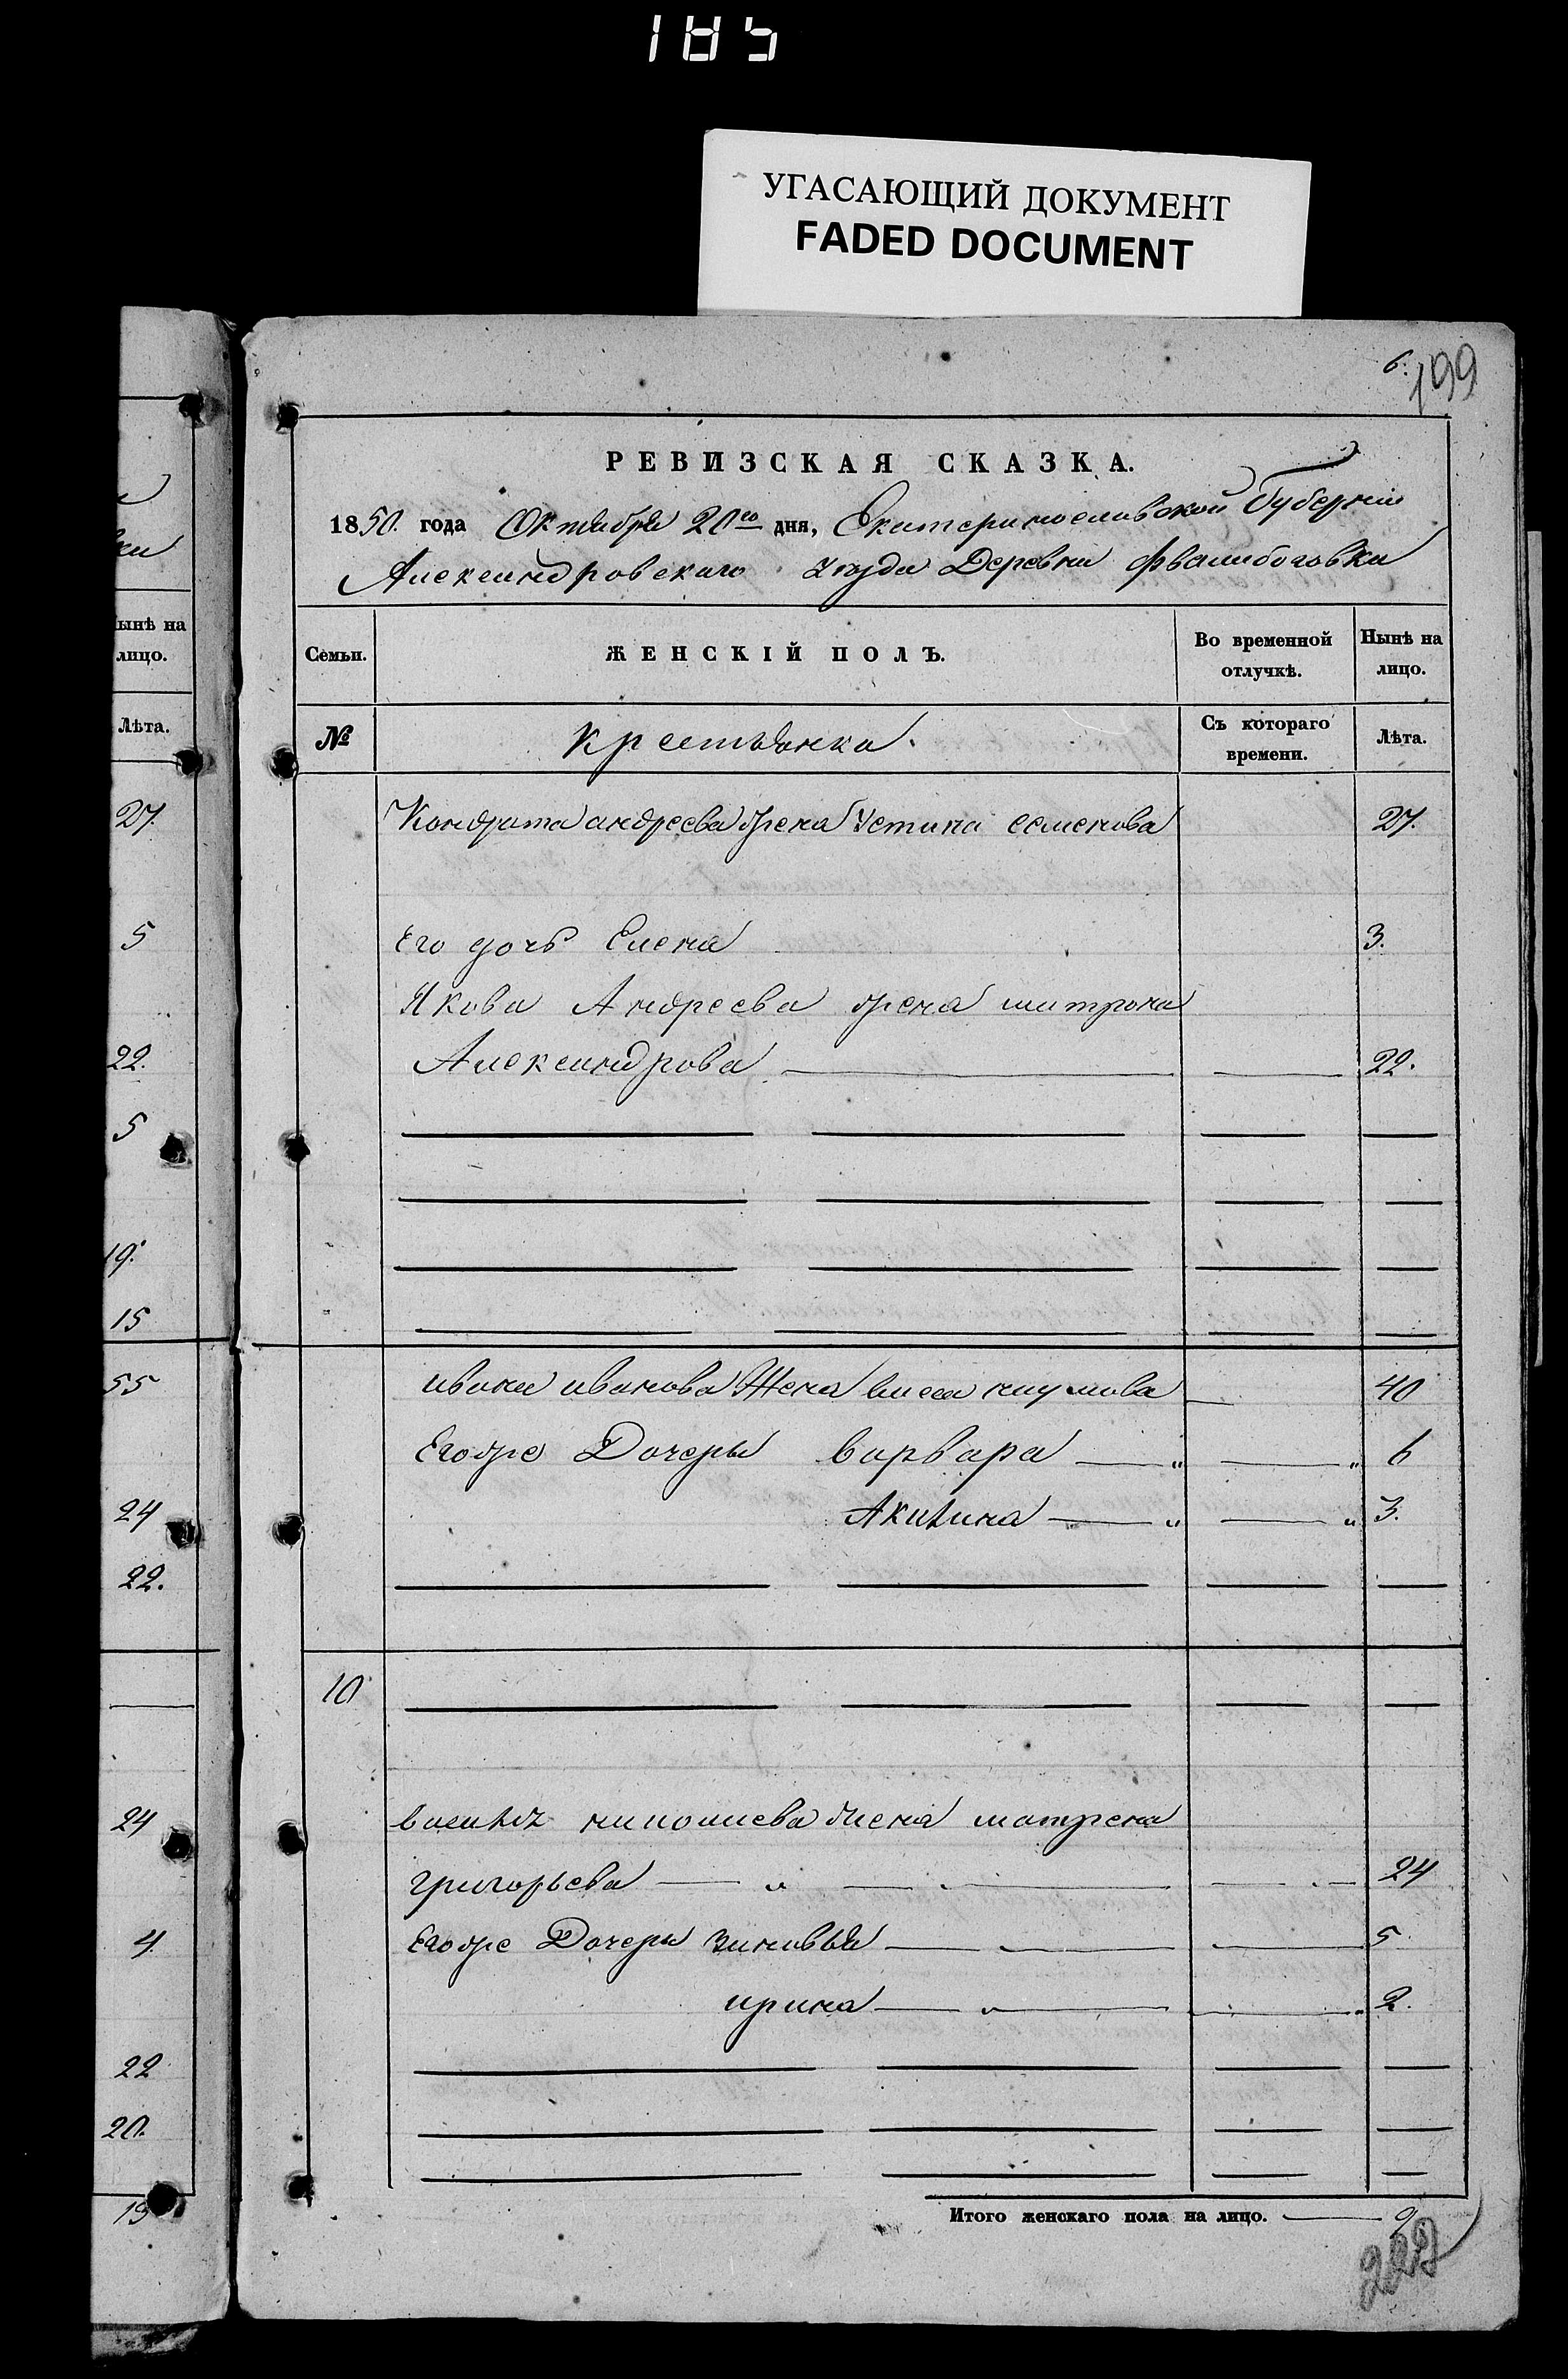 185
УГАСАЮЩИЙ ДОКУМЕНТ
FADED DOCUMENT
6.
199
РЕВИЗСКАЯ СКАЗКА.
1850. года Октября 20го дня, Екатеринославской Губерніи
Александровскаго уѣзда Деревни
ынѣ на
лицо.
Лѣта.
27.
5
22.
5
19.
15
55
24
22.
24
4
22
20.
19
Семьи.
ЖЕНСКІЙ ПОЛЪ.
Во временной отлучкѣ.
Нынѣ на лицо.
№
Крестьянка.
Съ котораго времени.
Лѣта.
Кондрата андреева жена Устина семенова 27.
Его дочь Елена 3.
Якова Андреева жена
Александрова 22.
ивана иванова Жена наумова 40
Егоже Дочеры варвара 6
Акилина 3.
10
жена матрена
григорьева 24
Егоже Дочеры зиновья 5
ирина 2.
Итого женскаго пола на лицо. 9
229